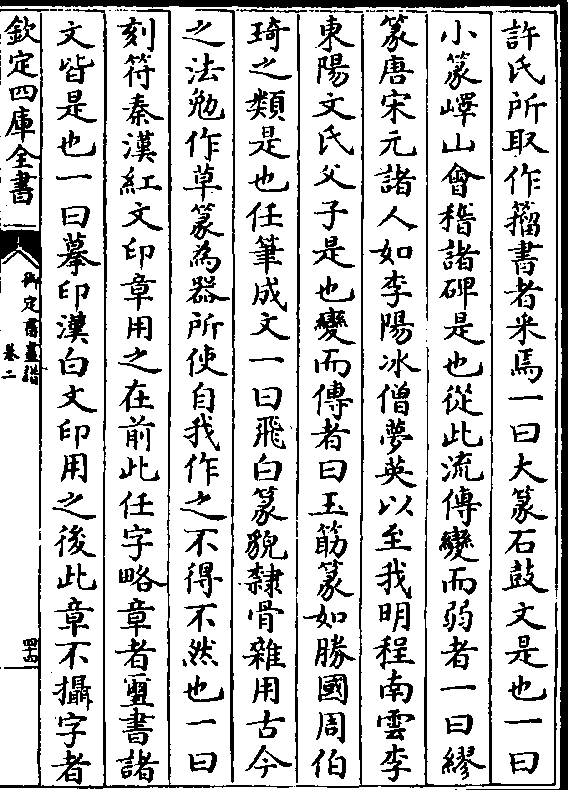 許氏所取作籀書者采焉一曰大篆石鼓文是也一曰
小篆嶧山會稽諸碑是也從此流傳變而弱者一曰繆
篆唐宋元諸人如李陽冰僧夢英以至我明程南雲李
東陽文氏父子是也變而傳者曰玉筯篆如勝國周伯
琦之類是也任筆成文一曰飛白篆貌隸骨雜用古今
之法勉作草篆為器所使自我作之不得不然也一曰
刻符秦漢紅文印章用之在前此任字略章者璽書諸
文皆是也一曰摹印漢白文印用之後此章不攝字者
欽定四庫全書
御定書畫譜
卷二
四十四